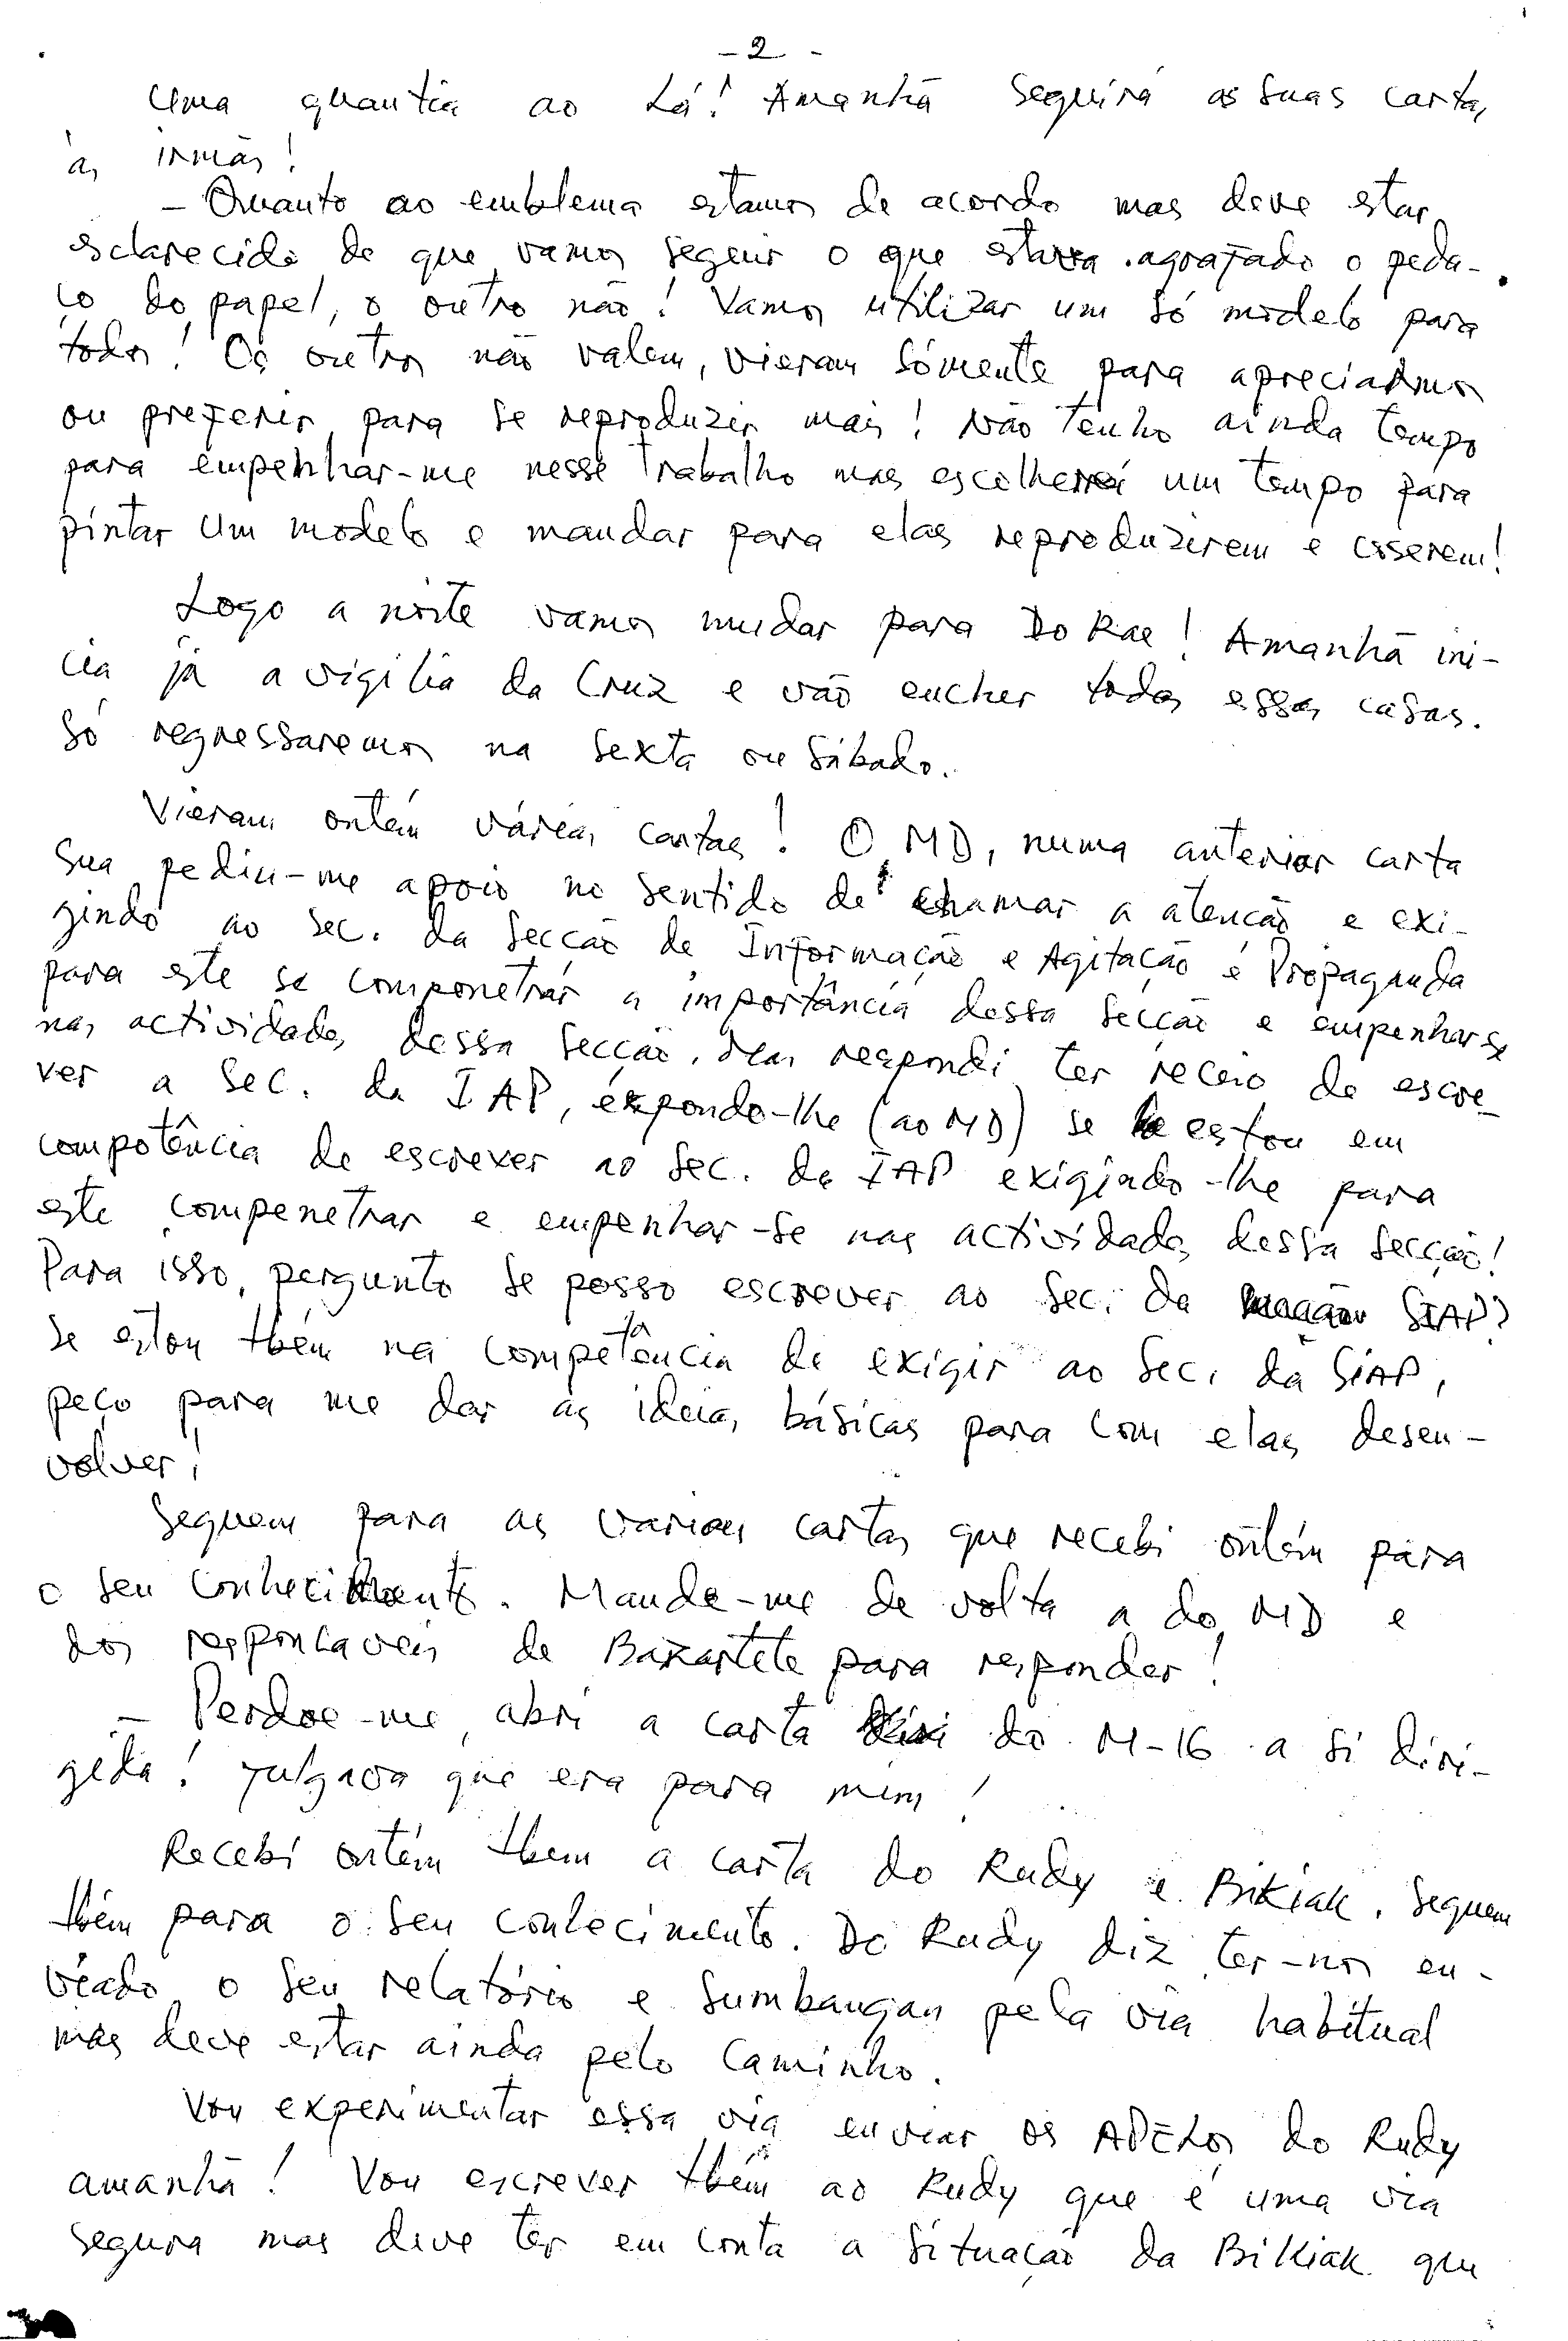 - 2 -
Uma quantia ao Lá! Amanhã seguirá as suas cartas
às irmãs!
- Quanto ao emblema estamos de acordo mas deve estar
esclarecido de que vamos seguir o que estava agrafado o peda-
ço do papel, o outro não! Vamos utilizar um só modelo para
todos! Os outros não valem, vieram sómente para apreciarmos
ou preferir para se reproduzir mais! Não tenho ainda tempo
para empenhar-me nesse trabalho mas escolherei um tempo para
pintar um modelo e mandar para elas reproduzirem e coserem!
Logo a noite vamos mudar para Do Rae! Amanhã ini-
cia já a vigília da Cruz e vão encher todas essas casas.
Só regressaremos na sexta ou sábado.
Vieram ontém várias cartas! O MD, numa anterior carta
sua pediu-me apoio no sentido de chamar a atenção e exi-
gindo ao sec. da secção de Informação e Agitação e Propaganda
para este se componetrár a importância dessa secção e empenhar se
nas actividades dessa secção. Mas respondi ter receio de escre-
ver a sec. da IAP, expondo-lhe (ao MD) se estou em
compotência de escrever ao sec. da IAP exigindo-lhe para
este compenetrar e empenhar-se nas actividades dessa secção!
Para isso, pergunto se posso escrever ao sec. da SIAP?
Se estou tbém na competência de exigir ao sec. da SIAP,
peço para me dar as ideias básicas para com elas desen-
volver!
Seguem para as varias cartas que recebi ontém para
o seu conhecimento. Mande-me de volta a do MD e
dos responsaveis de Bazartete para responder!
- Perdoe-me, abri a carta do M-16 a si diri-
gida! Julgava que era para mim!
Recebi ontém tbem a carta do Rudy e Bikiak. Seguem
tbém para o seu conhecimento. Do Rudy diz ter-nos en-
viado o seu relatório e sumbangan pela via habitual
mas deve estar ainda pelo caminho.
Vou experimentar essa via enviar os APELOS do Rudy
amanhã! Vou escrever tbém ao Rudy que é uma via
segura mas deve ter em conta a situação da Bikiak que